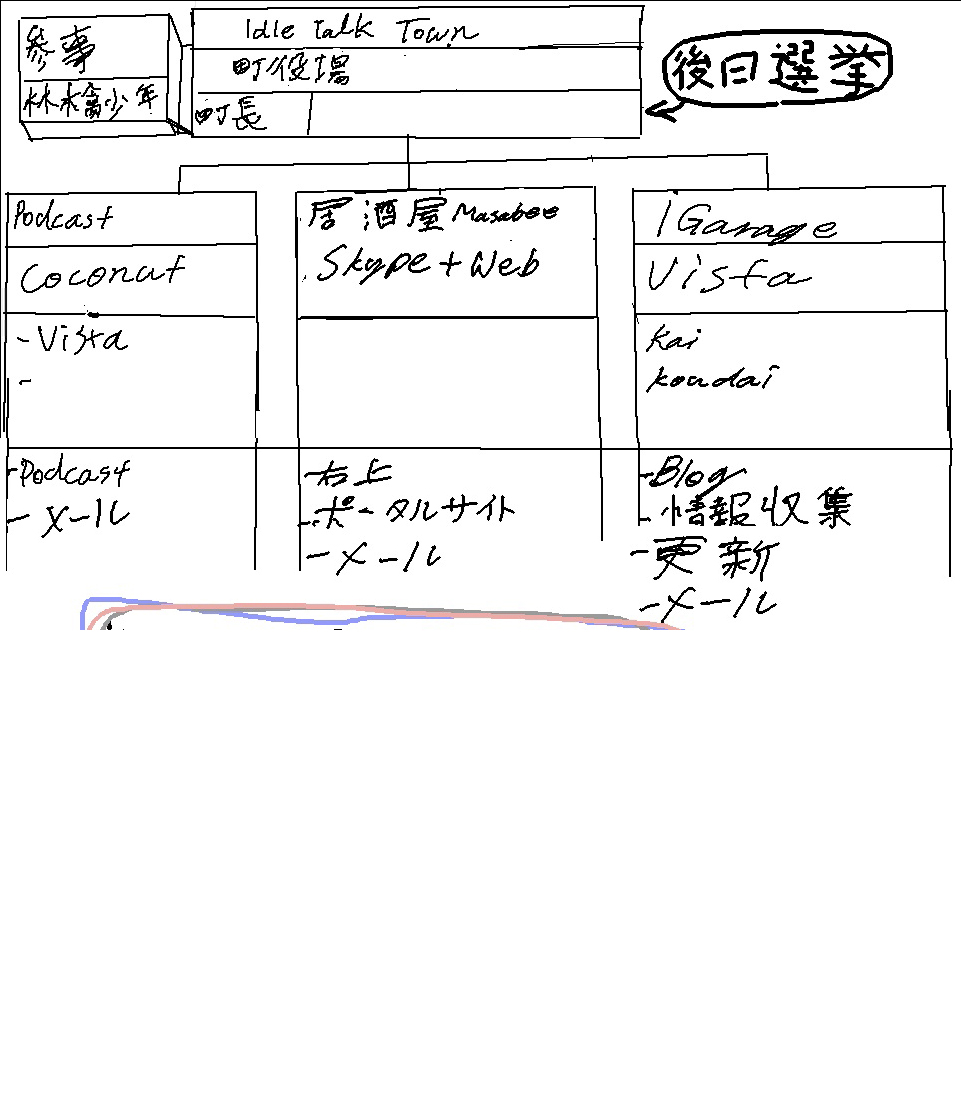 参事
林檎少年
Idle talk Town
町役場
町長
後日選挙
Podcast
Coconut
-Vista
-
-Podcast
-メール
居酒屋Masabee
Skype+Web
-右上
-ポータルサイト
-メール
iGarage
Vista
Kai
koudai
-Blog
-情報収集
-更新
-メール